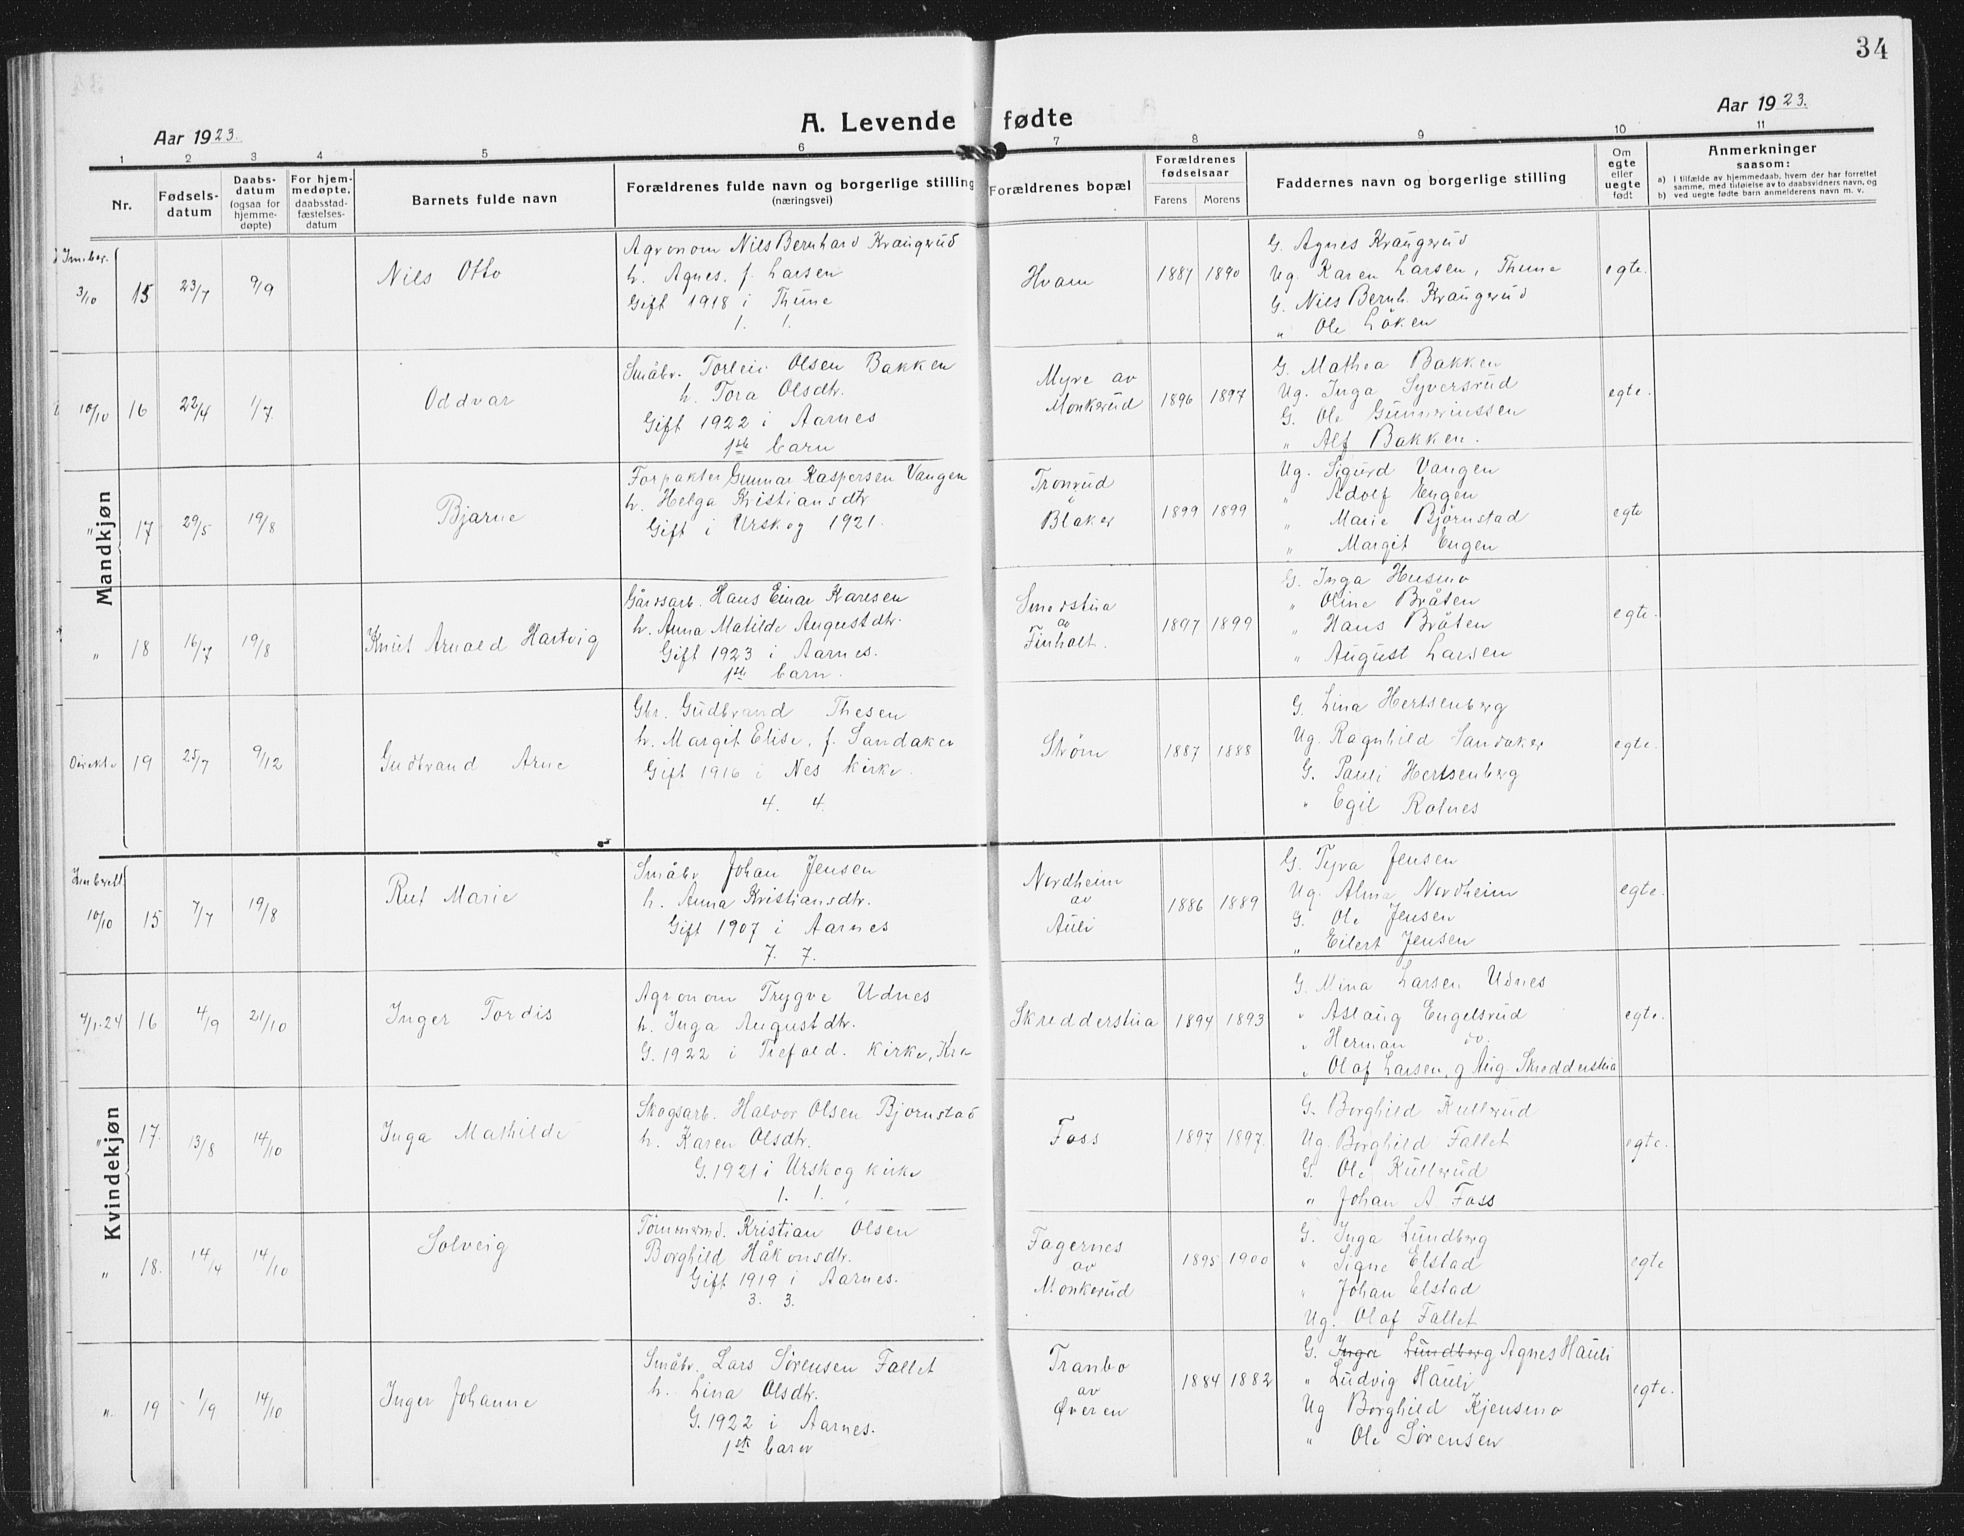 34
Aar 1923.
A. Levende fødte
Aar 1923.
1 2 3 4 5 6 7 8 9 10 11
Nr.
Fødsels-
datum
Daabs-
datum
(ogsaa for
hjemme-
døpte)
For hjem-
medøpte,
daabsstad-
fæstelses-
datum
Barnets fulde navn
Forældrenes fulde navn og borgerlige stilling
(næringsvei)
Forældrenes bopæl
Forældrenes
fødselsaar
Farens Morens
Faddernes navn og borgerlig stilling
Om
egte
eller
uegte
født
Anmerkninger
saasom:
a) I tilfælde av hjemmedaab, hvem der har forrettet
samme, med tilføielse av to daabsvidners navn, og
b) ved uegte fødte barn anmelderens navn m. v.
Mandkjøn
Innber.
3/10 15 23/7 9/9
Nils Otto
Agronom Nils Bernhard Kraugerud
h. Agnes, f. Larsen
Gift 1918 i Thune
1. 1.
Hvam
1887 1890
G. Agnes Kraugerud
Ug. Karen Larsen, Thune
G. Nils Bernh. Kraugerud
" Ole Løken
egte.
10/10 16 22/4 1/7.
Oddvar
Småbr. Torleiv Olsen Bakken
h. Tora Olsdtr.
Gift 1922 i Aarnes
1ste barn
Myre av
Monkerud
1896 1897
G. Mathea Bakken
Ug. Inga Syversrud
G. Ole Gunneriussen
" Alf Bakken.
egte.
" 17 29/5 19/8
Bjarne
Forpakter Gunnar Kaspersen Vangen
h. Helga Kristiansdtr
Gift i Urskog 1921.
Tronrud
i
Blaker
1899 1899
Ug. Sigurd Vangen
" Adolf Engen
" Marie Bjørnstad
" Margit Engen
egte
" 18 16/7 19/8
Knut Arnold Hartvig
Gårdsarb. Hans Einar Karlsen
h. Anna Matilde Augustdtr.
Gift 1923 i Aarnes.
1ste barn.
Smedstua
av
Finholt.
1897 1899
G. Inga Husmo
" Oline Bråten
" Hans Bråten
" August Larsen
egte.
Direkte 19 25/7 9/12
Gudbrand Arne
Gbr. Gudbrand Thesen
h. Margit Elise, f. Sandaker
Gift 1916 i Nes kirke.
4. 4.
Strøm
1887 1888
G. Lina Hertsenberg
Ug. Ragnhild Sandaker
G. Pauli Hertsenberg
" Egil Rotnes
egte.
Kvindekjøn
Innberett.
10/10 15 7/7 19/8
Rut Marie
Småbr Johan Jensen
h. Anna Kristiansdtr.
Gift 1907 i Aarnes
7. 7.
Nordheim
av
Auli
1886 1889
G. Tyra Jensen
Ug. Alma Nordheim
G. Ole Jensen
" Eilert Jensen
egte.
4/1-24 16 4/9 21/10
Inger Tordis
Agronom Trygve Udnes
h. Inga Augustdtr.
G. 1922 i Trefold. kirke, Kra
Skredderstua
1894 1893
G. Mina Larsen Udnes
" Aslaug Engelsrud
" Herman do.
" Olaf Larsen, g Aug. Skredderstua
egte.
" 17. 13/8 14/10
Inga Mathilde
Skogsarb. Halvor Olsen Bjørnstad
h. Karen Olsdtr.
G. 1921 i Urskog kirke
1. 1.
Foss
1897 1897
G. Borghild Kullerud
Ug. Borghild Fallet
G. Ole Kullerud
" Johan A Foss
egte.
" 18. 14/4 14/10
Solveig
Tømmermd. Kristian Olsen
Borghild Håkonsdtr.
Gift 1919 i Aarnes.
3. 3.
Fagernes
av
Monkerud
1895 1900
G. Inga Lundberg
" Signe Elstad
" Johan Elstad
Ug. Olaf Fallet
egte
" 19 1/9 14/10
Inger Johanne
Småbr. Lars Sørensen Fallet
h. Lina Olsdtr.
G. 1922 i Aarnes.
1ste barn
Tranbo
av
Øveren
1884 1882
G. Inga Lundberg Agnes Hauli
" Ludvig Hauli
Ug Borghild Kjensmo
" Ole Sørensen
egte.